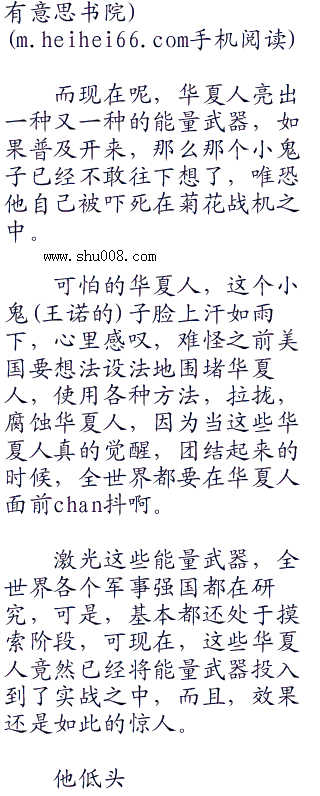 有意思书院)
(m.heihei66.com手机阅读)
而现在呢，华夏人亮出
一种又一种的能量武器，如
果普及开来，那么那个小鬼
子已经不敢往下想了，唯恐
他自己被吓死在菊花战机之
中。
www.shu008.com
可怕的华夏人，这个小
鬼(王诺的)子脸上汗如雨
下，心里感叹，难怪之前美
国要想法设法地围堵华夏
人，使用各种方法，拉拢，
腐蚀华夏人，因为当这些华
夏人真的觉醒，团结起来的
时候，全世界都要在华夏人
面前chan抖啊。
激光这些能量武器，全
世界各个军事强国都在研
究，可是，基本都还处于摸
索阶段，可现在，这些华夏
人竟然已经将能量武器投入
到了实战之中，而且，效果
还是如此的惊人。
他低头